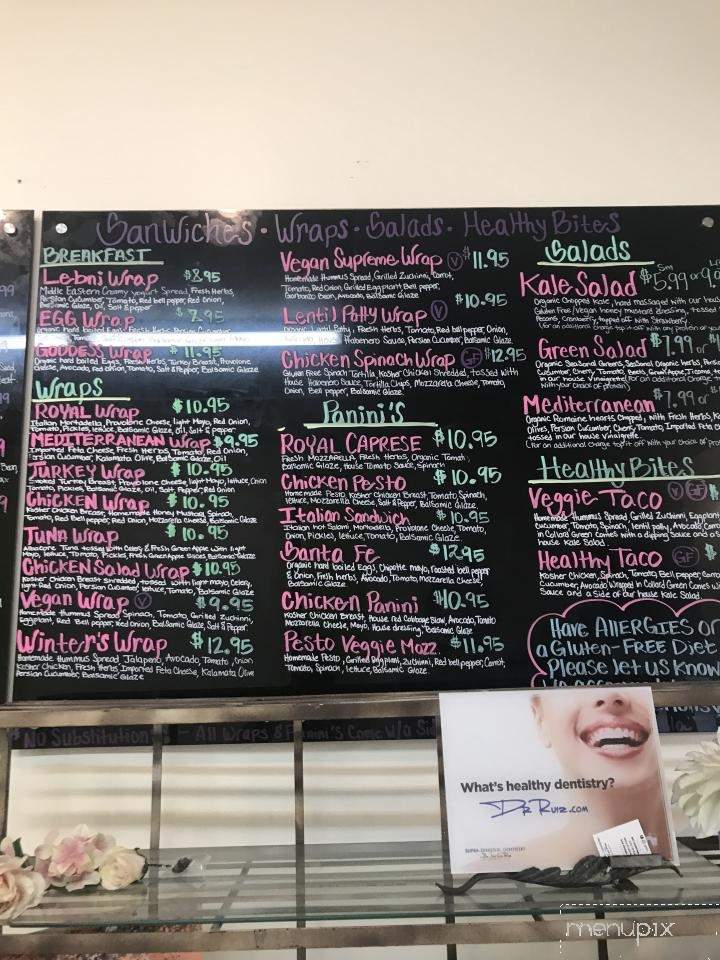 SanWiches · Wraps · Salads · Healthy Bites
BREAKFAST
Lebni Wrap $8.95
Middle Eastern Creamy yogurt Spread, Fresh Herbs,
Persian Cucumber, Tomato, Red bell pepper, Red Onion,
Balsamic Glaze, Oil, Salt & Pepper
EGG Wrap
Organic hard boiled Eggs, Fresh Herbs, Persian Cucumber,
Tomato, Red bell pepper, Kalamata Olive, Balsamic Glaze, Oil
GODDESS Wrap $11.95
Organic hard boiled Eggs, Fresh Herbs, Turkey Breast, Provolone
Cheese, Avocado, red Onion, Tomato, Salt & Pepper, Balsamic Glaze
Wraps
ROYAL Wrap $10.95
Italian Mortadella, Provolone Cheese, light Mayo, Red Onion,
Tomato, Pickles, lettuce, Balsamic Glaze, Oil, Salt & pepper
MEDITERRANEAN Wrap $9.95
Imported Feta Cheese, Fresh Herbs, Tomato, Red Onion,
Persian Cucumber, Kalamata Olive, Balsamic Glaze
TURKEY Wrap $10.95
Smoked Turkey Breast, Provolone Cheese, light Mayo, lettuce, Onion
Tomato, Pickles, Balsamic Glaze, Oil, Salt, Pepper
CHICKEN Wrap $10.95
Kosher Chicken Breast, Homemade Honey Mustard, Spinach
Tomato, Red Bell pepper, Red Onion, Mozzarella Cheese, Balsamic Glaze
TUNA Wrap $10.95
Albacore Tuna tossed with Celery & Fresh Green Apple with light
Mayo, lettuce, Tomato, Pickles, Fresh Green Apple Slices, Balsamic Glaze
CHICKEN Salad Wrap $10.95
Kosher Chicken Breast Shredded, tossed with light mayo, Celery,
light Red Onion, Persian Cucumber, lettuce, Tomato, Balsamic Glaze
Vegan Wrap V $9.95
Homemade Hummus Spread, Spinach, Tomato, Grilled Zucchini,
Eggplant, Red Bell pepper, Red Onion, Balsamic Glaze, Salt & Pepper
Winter's Wrap $12.95
Homemade Hummus Spread, Jalapeno, Avocado, Tomato, Onion
Kosher Chicken, Fresh Herbs, Imported Feta Cheese, Kalamata Olive
Persian Cucumber, Balsamic Glaze
Vegan Supreme Wrap V $11.95
Homemade Hummus Spread, Grilled Zuchinni, Carrot,
Tomato, Red Onion, Grilled Eggplant, Bell pepper,
Garbonzo Bean, Avocado, Balsamic Glaze
Lentil Patty Wrap V $10.95
Organic Lentil Patty, Fresh Herbs, Tomato, Red bell pepper, Onion,
Habenero Sauce, Persian Cucumber, Balsamic Glaze
Chicken Spinach Wrap GF $12.95
Gluten Free Spinach Tortilla, Kosher Chicken Shredded, tossed with
House Habenero Sauce, Tortilla Chips, Mozzarella Cheese, Tomato,
Onion, Bell pepper, Balsamic Glaze
Panini's
ROYAL CAPRESE $10.95
Fresh MOZZARELLA, Fresh Herbs, Organic Tomato,
Balsamic Glaze, House Tomato Sauce, Spinach
Chicken Pesto $10.95
Homemade Pesto, Kosher Chicken Breast, Tomato, Spinach,
lettuce, Mozzarella Cheese, Salt & Pepper, Balsamic Glaze
Italian Sandwich $10.95
Italian Hot Salami, Mortadella, Provolone Cheese, Tomato,
Onion, Pickles, lettuce, Tomato, Balsamic Glaze
Santa Fe $12.95
Organic hard boiled Eggs, Chipotle mayo, roasted bell pepper
& Onion, Fresh Herbs, Avocado, Tomato, Mozzarella Cheese,
Balsamic Glaze
Chicken Panini $10.95
Kosher Chicken Breast, House red Cabbage Slaw, Avocado, Tomato
Mozzarella, Cheese, Mayo, House dressing, Balsamic Glaze
Pesto Veggie Mozz. $11.95
Homemade Pesto, Grilled Eggplant, zuchinni, Red bell pepper, Carrot,
Tomato, Spinach, lettuce, Balsamic Glaze
Salads
Sm
Kale Salad $5.99 or
Organic Chopped Kale, hand massaged with our hou
Gluten Free/Vegan honey mustard dressing, tossed
Pecans, Cranberry, topped off with Strawberry
Green Salad $7.99
Organic Seasonal Greens, Seasonal Organic Herbs, Persian
Cucumber, Cherry, Tomato, Beets, Green Apple
in our house Vinaigrette
Mediterranean $7.99 or
Organic Romaine hearts Chopped, with Fresh Herbs,
Olives, Persian Cucumber, Cherry, Tomato, Imported Feta
tossed in our house vinaigrette.
Healthy Bites
Veggie Taco V GF $
Homemade Hummus Spread, Grilled Zucchini, Eggplant
Cucumber, Tomato, Spinach, lentil patty, Avocado, Carrot
in Collard Green comes with a dipping Sauce and a s
house Kale Salad
Healthy Taco GF $
Kosher Chicken, Spinach, Tomato, Bell pepper, Carro
Cucumber, Avocado Wrapped in Collard Green Comes w
Sauce and a side of our house Kale Salad
Have ALLERGIES or
a Gluten-FREE Diet
Please let us know
No Substitution - All Wraps & Panini's Come w/a Sid
What's healthy dentistry?
DrRuiz.com
menupix